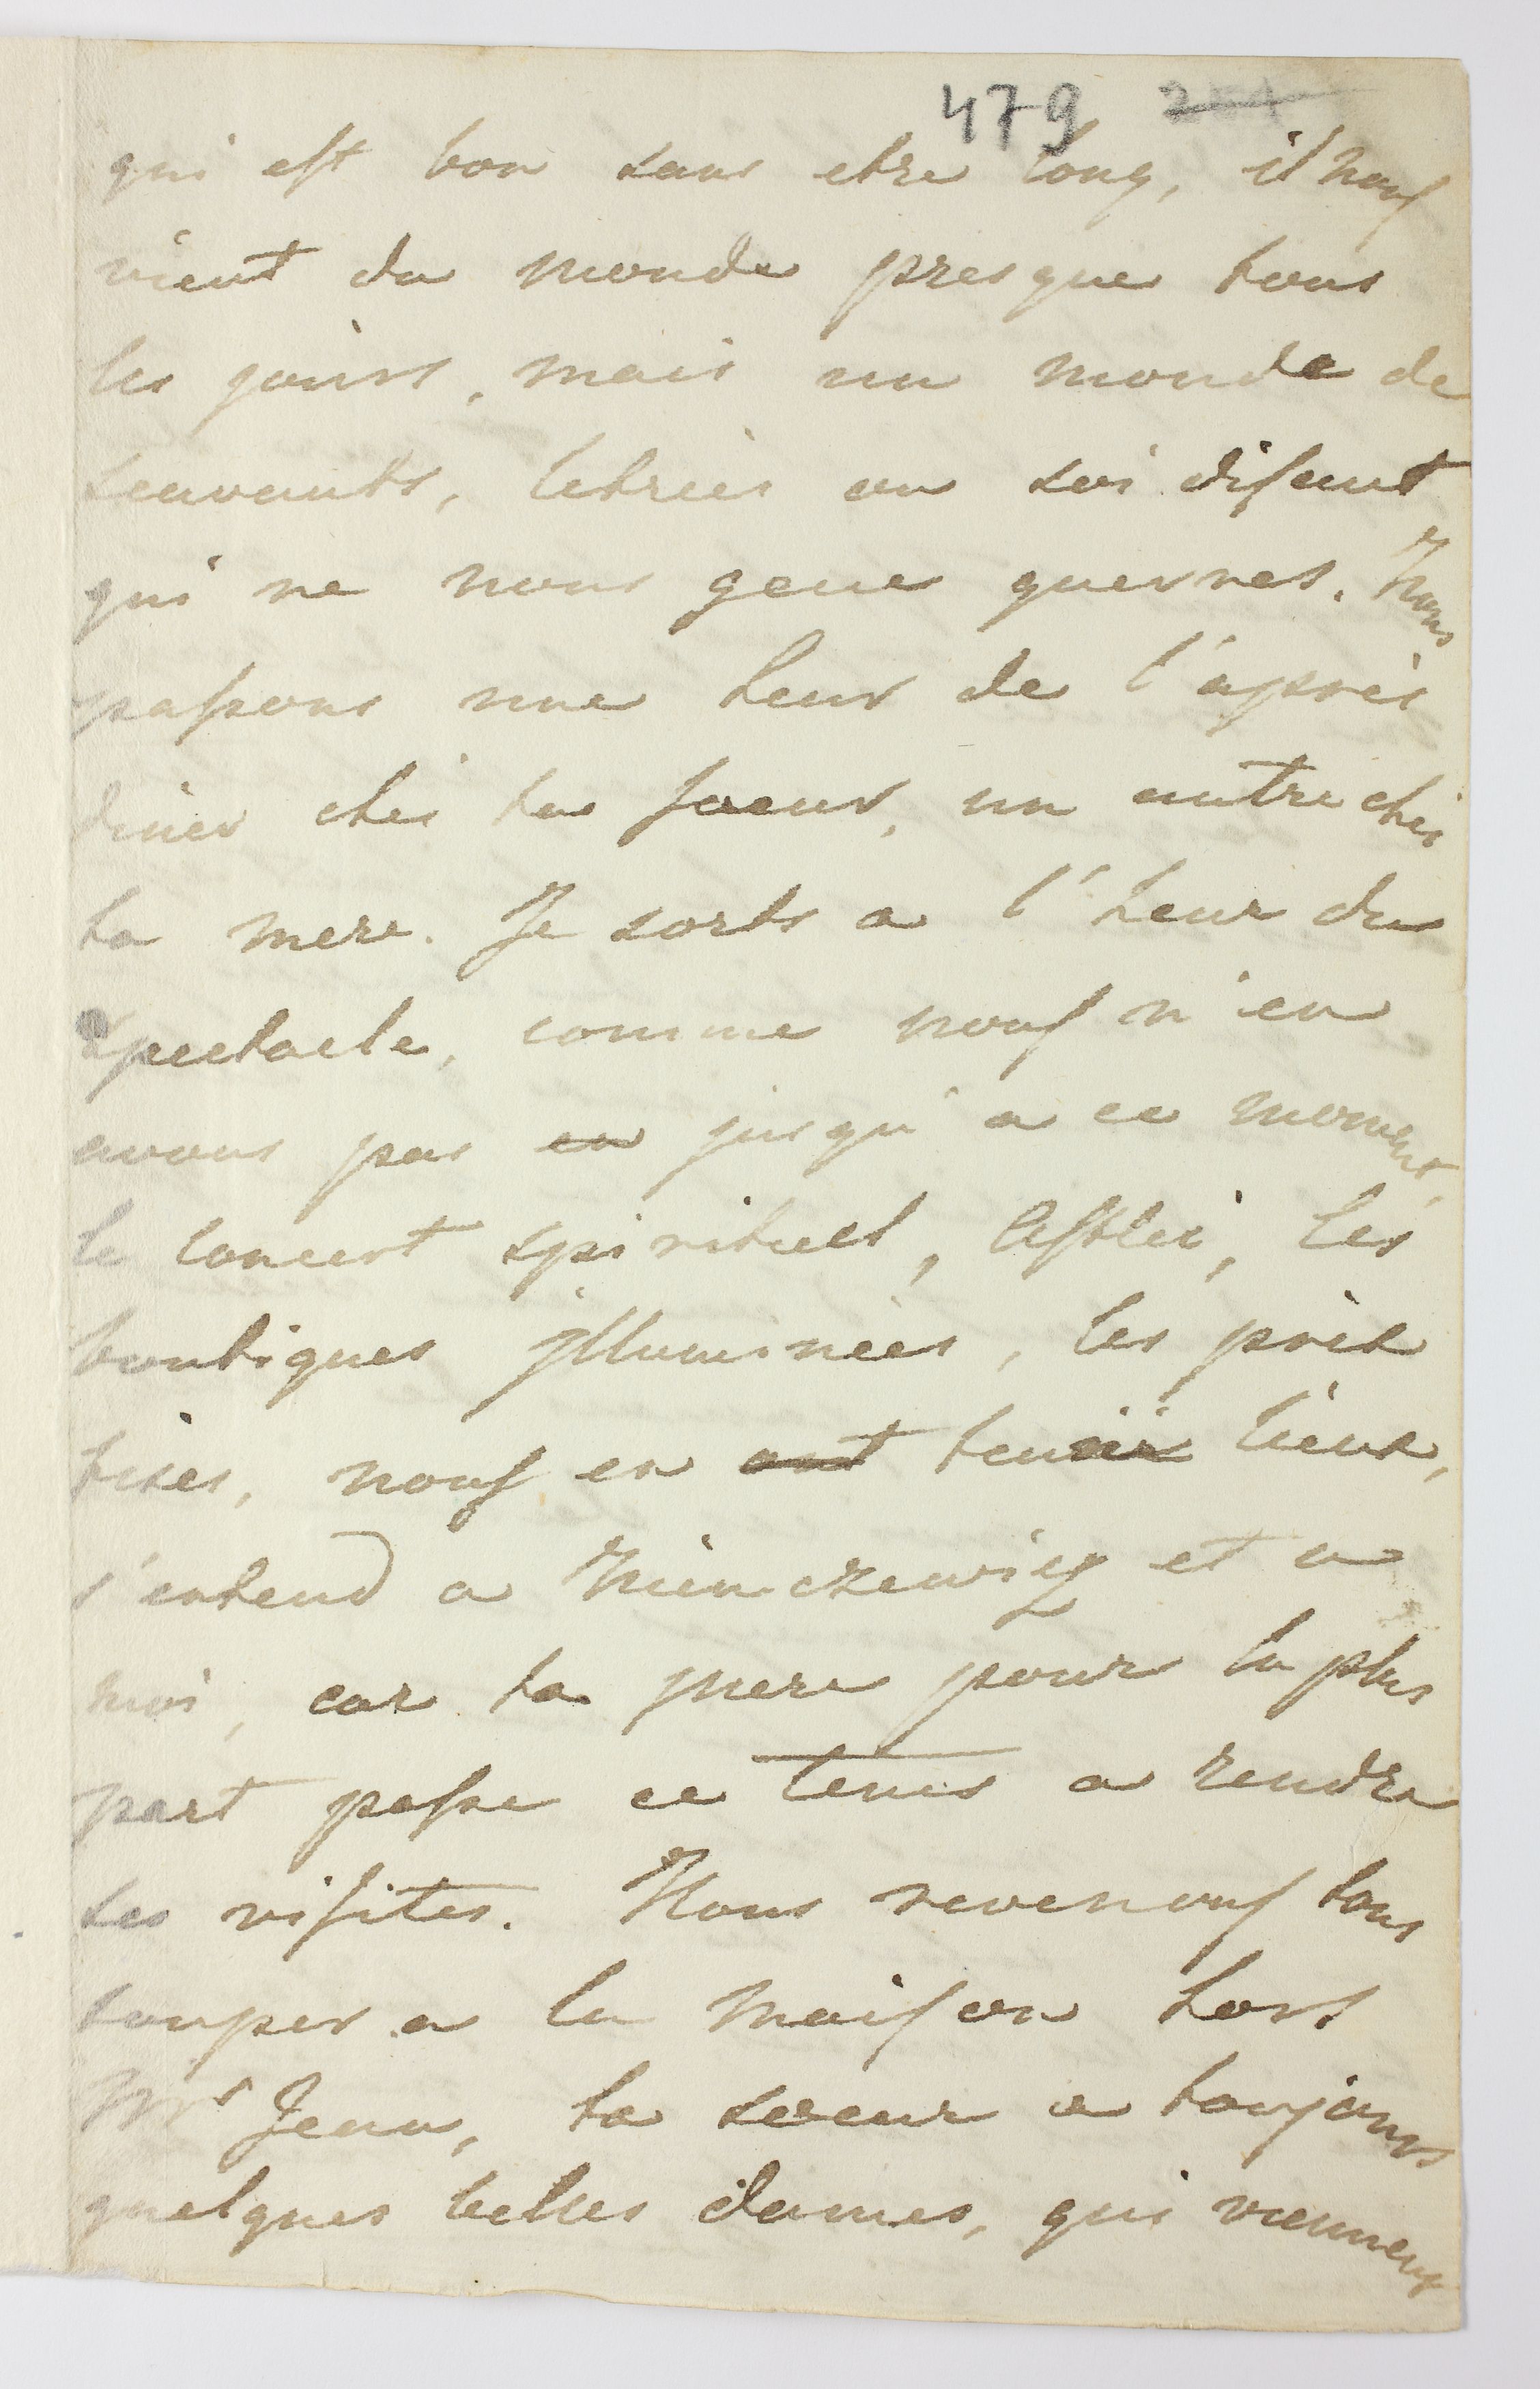 479
qui est bon sans etre long, il nous
vient du monde presque tous
les jours, mais un monde de
scavants, letrèes ou soi disant
qui ne nous gene guerres. Nous
passons une heur de l'après
diner chéi ta soeur, un autre chéi
ta mere. Je sorts a l'heur du
spectacle, comme nous n'en
avons pas eu jusqu'a ce moment,
le concert spirituel, Astlei, les
boutiques jlluminèes,
nous en ont lieux,
s'entend a et a
moi, car ta mere pour la plus
part passe ce tems a rendre
ses visites. Nous revenons tous
souper a la maison hors
Mr Jean, ta soeur a toujours
quelques belles dames, qui viennent